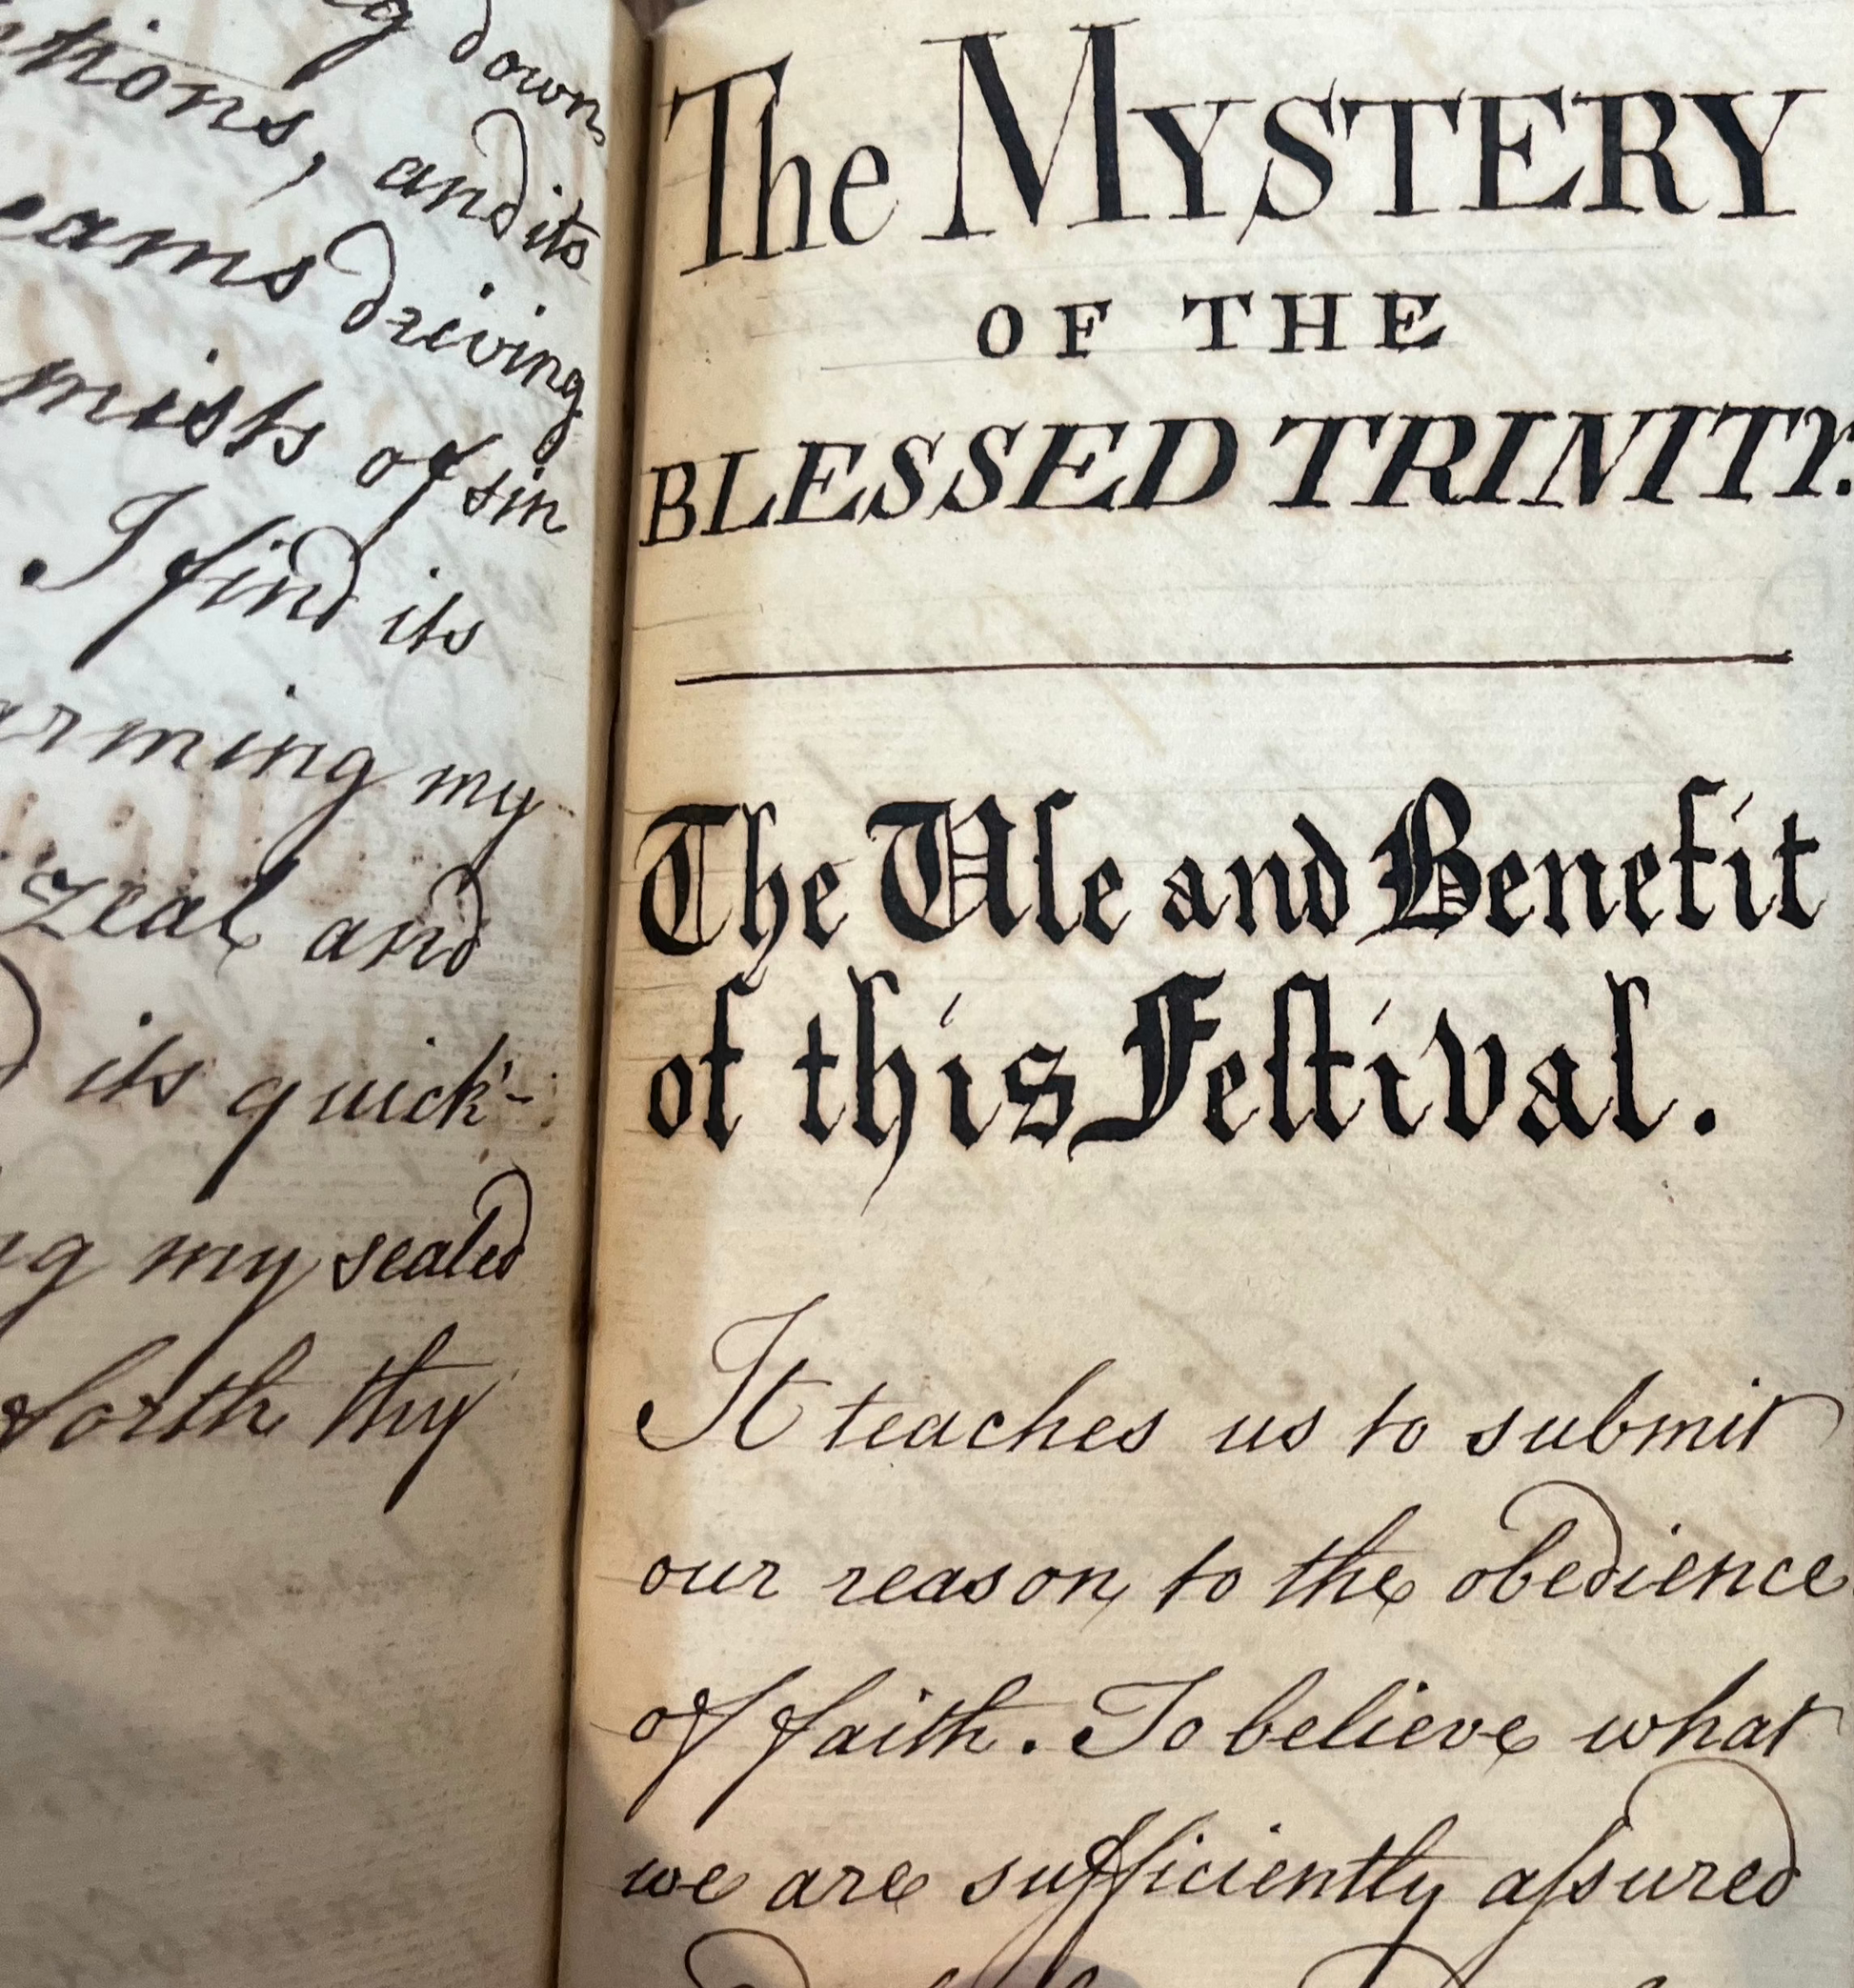 down
and its
driving
mists of sin
I find its
my
zeal and
its quick-
my sealed
forth thy
The MYSTERY
OF THE
BLESSED TRINITY.
The Uſe and Benefit
of this Feſtival.
It teaches us to submit
our reason to the obedience
of faith. To believe what
we are sufficiently aſsured